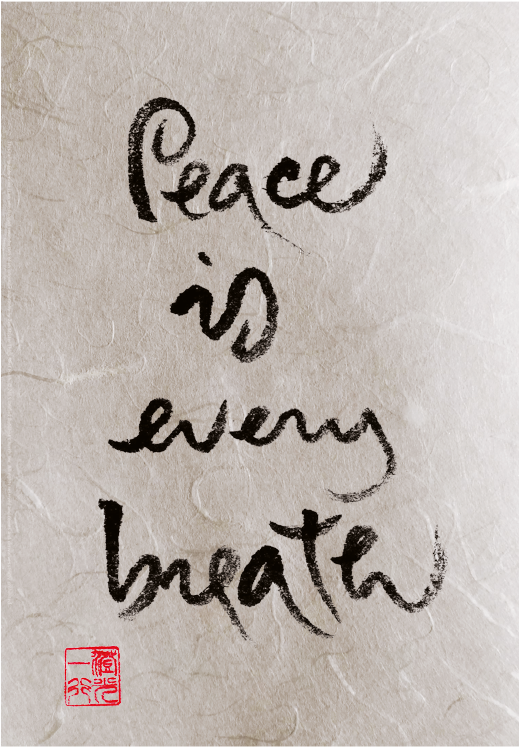 Peace
is
every
breath
澄光
一行